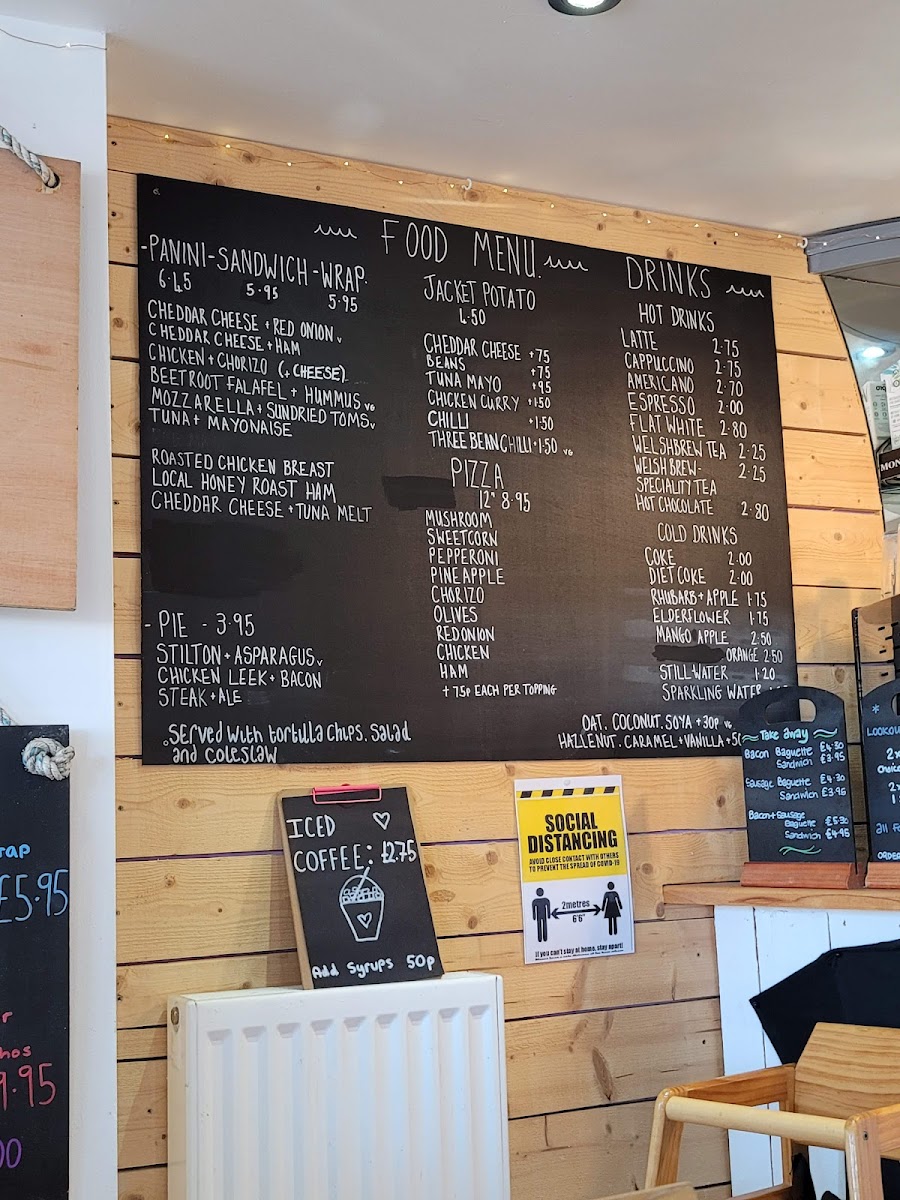 FOOD MENU.
-PANINI-SANDWICH-WRAP.
6.45 5.95 5.95
CHEDDAR CHEESE + RED ONION v
CHEDDAR CHEESE + HAM
CHICKEN + CHORIZO (+ CHEESE)
BEETROOT FALAFEL + HUMMUS VG
MOZZARELLA + SUNDRIED TOMS v
TUNA + MAYONAISE
ROASTED CHICKEN BREAST
LOCAL HONEY ROAST HAM
CHEDDAR CHEESE + TUNA MELT
- PIE - 3.95
STILTON + ASPARAGUS v
CHICKEN LEEK + BACON
STEAK + ALE
. Served with tortilla chips. salad
and coleslaw
JACKET POTATO
4.50
CHEDDAR CHEESE +75
BEANS +75
TUNA MAYO +95
CHICKEN CURRY +1.50
CHILLI +1.50
THREE BEAN CHILLI +1.50 VG
PIZZA
12" 8.95
MUSHROOM
SWEETCORN
PEPPERONI
PINEAPPLE
CHORIZO
OLIVES
RED ONION
CHICKEN
HAM
+ 75p EACH PER TOPPING
DRINKS
HOT DRINKS
LATTE 2.75
CAPPUCCINO 2.75
AMERICANO 2.70
ESPRESSO 2.00
FLAT WHITE 2.80
WELSHBREW TEA 2.25
WELSH BREW- 2.25
SPECIALITY TEA
HOT CHOCOLATE 2.80
COLD DRINKS
COKE 2.00
DIET COKE 2.00
RHUBARB + APPLE 1.75
ELDERFLOWER 1.75
MANGO APPLE 2.50
ORANGE 2.50
STILL WATER 1.20
SPARKLING WATER
OAT. COCONUT. SOYA + 30p VG
HAZLENUT. CARAMEL + VANILLA +
ICED
COFFEE: £2.75
Add Syrups 50p
SOCIAL
DISTANCING
AVOID CLOSE CONTACT WITH OTHERS
TO PREVENT THE SPREAD OF COVID-19
2metres
6'6"
If you can't stay at home, stay apart!
Take away
Bacon Baguette £4.30
Sandwich £3.95
Sausage Baguette £4.30
Sandwich £3.95
Bacon + Sausage
Baguette £5.30
Sandwich £4.95
£5.95
9.95